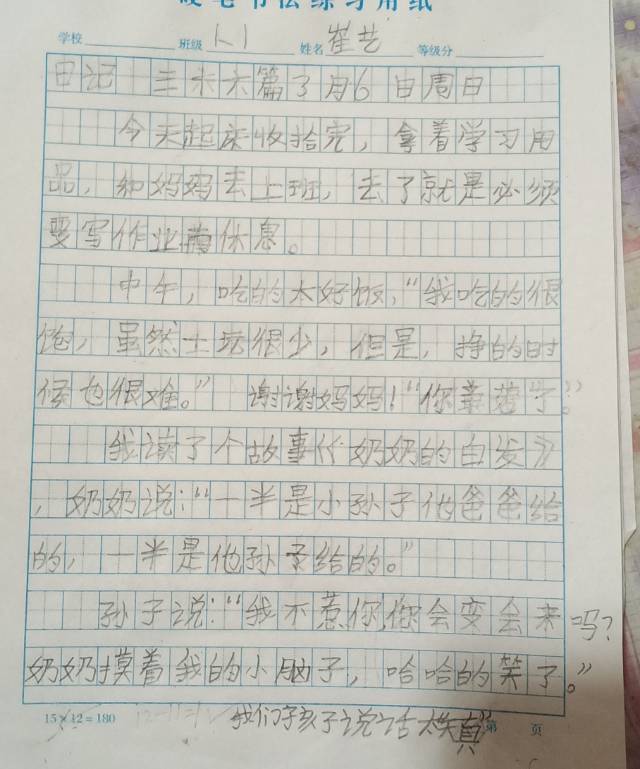 硬笔书法练习用纸
学校 班级 1-1 姓名 崔艺 等级分
日记 三米大篇了月6日周日
今天起床收拾完，拿着学习用
品，和妈妈去上班，去了就是必须
要写作业 休息。
中午，吃的大好饭，“我吃的很
饱，虽然土坛很少，但是，挣的时
候也很难。” 谢谢妈妈！“你辛苦了。”
我读了个故事《奶奶的白发》
，奶奶说：“一半是小孙子他爸爸给
的，一半是他孙子给的。”
孙子说：“我不惹你，您会变会来吗？
奶奶摸着我的小脑子，哈哈的笑了。”
15×12=180 我们孩子说话太失真” 第 页